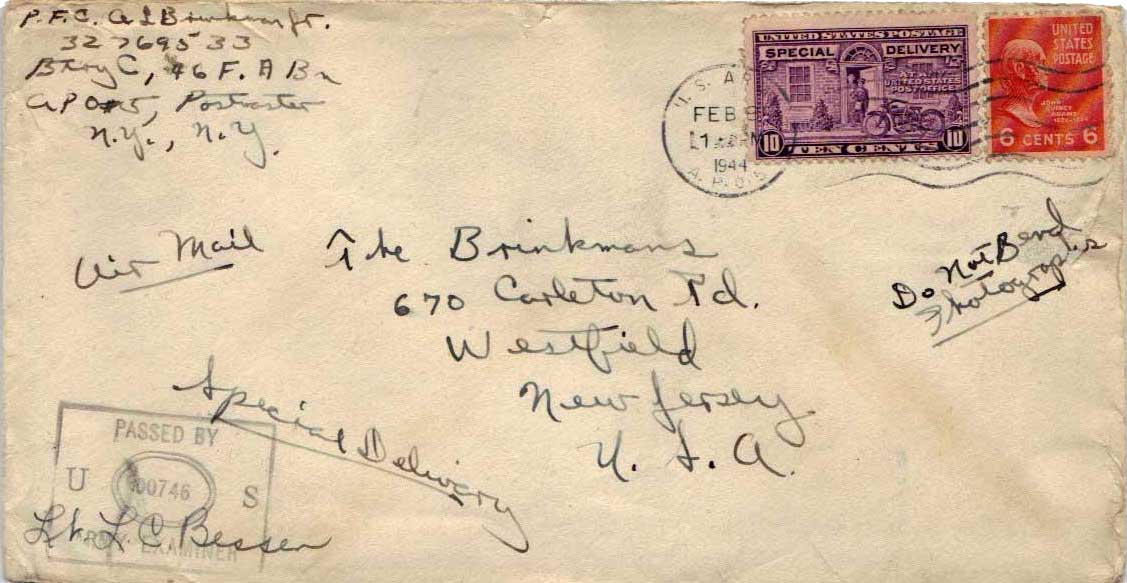 P.F.C. A L Brinkman Jr.
32769533
Btry C, 46 F. A Bn
A.P.O. 5, Postmaster
N.Y., N.Y.
U. S. A
FEB
1944
A. P. O.
UNITED STATES POSTAGE
SPECIAL DELIVERY
AT ANY
UNITED STATES
POST OFFICE
10 TEN CENTS 10
UNITED
STATES
POSTAGE
JOHN
QUINCY
ADAMS
6 CENTS 6
Air Mail
The Brinkmans
670 Carleton Rd.
Westfield
New Jersey
U. S. A.
Do Not Bend
Photographs
Special Delivery
PASSED BY
U 00746 S
ARMY EXAMINER
Lt. L C Bessen